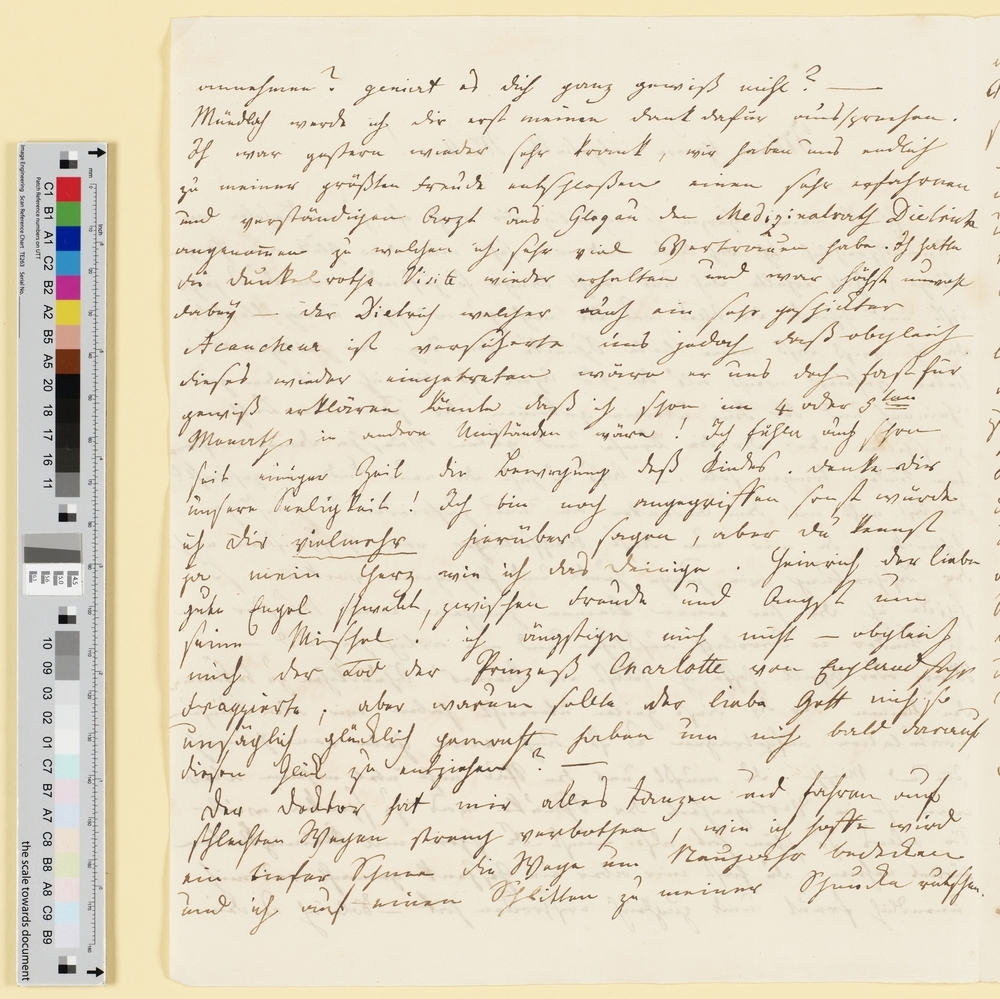 annehmen? geniert es dich ganz gewiß nicht? —
Mündlich werde ich dir erst meinen dank dafür aussprechen.
Ich war gestern wieder sehr krank, wir haben uns endlich
zu meiner größten Freude entschloßen einen sehr erfahrnen
und verständigen Arzt aus Glogau den Medizinalrath Dietrich
angenomen zu welchen ich sehr viel Vertrauen habe. Ich hatte
die dunkelrothe Visite wieder erhalten und war höchst unwohl
dabey — der Dietrich welcher auch ein sehr geschickter
Acoucheur ist versicherte uns jedoch daß obgleich
dieses wieder eingetreten wäre er uns doch fast für
gewiß erklären könnte daß ich schon im 4 oder 5ten
Monathe in andern Umständen wäre! Ich fühle auch schon
seit einiger Zeit die Bewegung deß Kindes. denke dir
unsere Seeligkeit! Ich bin noch angegriffen sonst würde
ich dir vielmehr hierüber sagen, aber du kennst
ja mein Herz wie ich das deinige. Heinrich der liebe
gute Engel schwebt, zwischen Freude und Angst um
seine Mischel. ich ängstige mich nicht — obgleich
mich der Tod der Prinzeß Charlotte von England sehr
frappierte; aber warum sollte der liebe Gott mich so
unsäglich glücklich gemacht haben um mich bald darauf
diesen Glück zu entziehen? —
Der Docktor hat mir alles tanzen und fahren auf
schlechten Wegen streng verbothen, wie ich hoffe wird
ein tiefer Schnee die Wege um Neujahr bedecken
und ich auf einen Schlitten zu meiner rutschen.
the scale towards document
Image Engineering Scan Reference Chart TE263 Serial No.
Patch Reference numbers on UTT
C1 B1 A1 C2 B2 A2 B5 A5 20 18 17 16 11
10 09 03 02 01 C7 B7 A7 C8 B8 A8 C9 B9